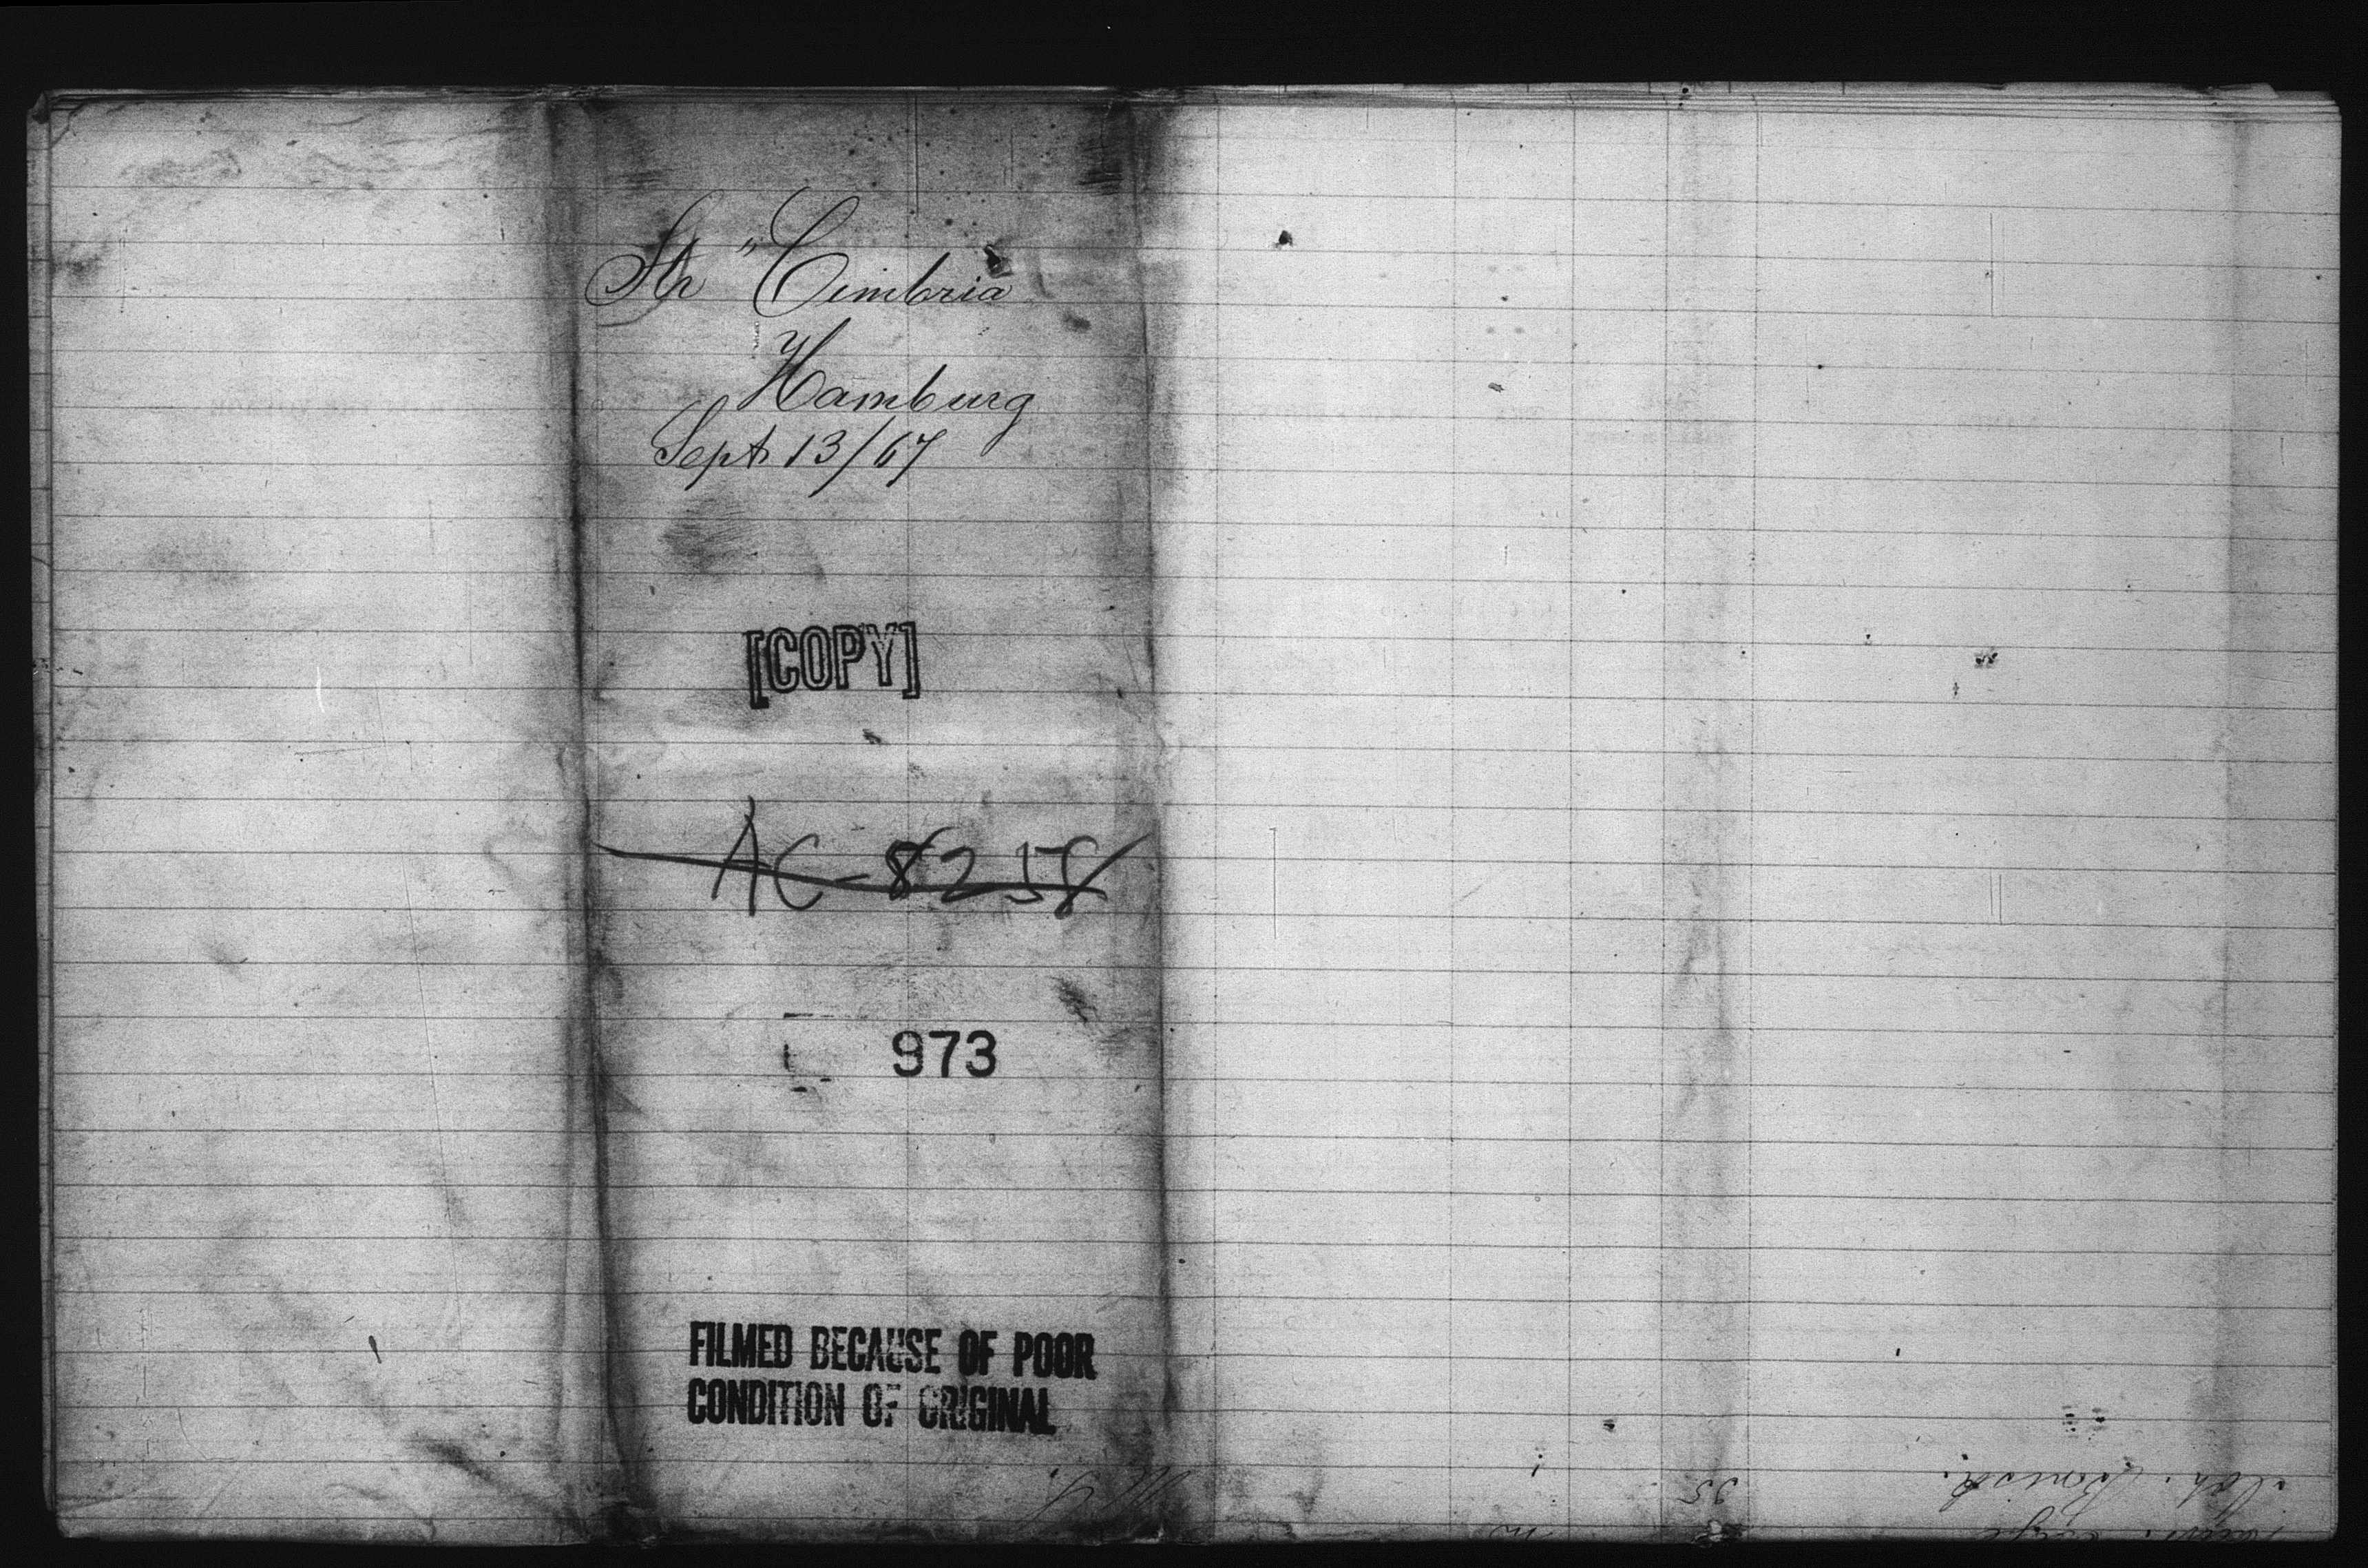 Str "Cimbria
Hamburg
Sept 13/67
[COPY]
AC-8258
973
FILMED BECAUSE OF POOR
CONDITION OF ORIGINAL
35